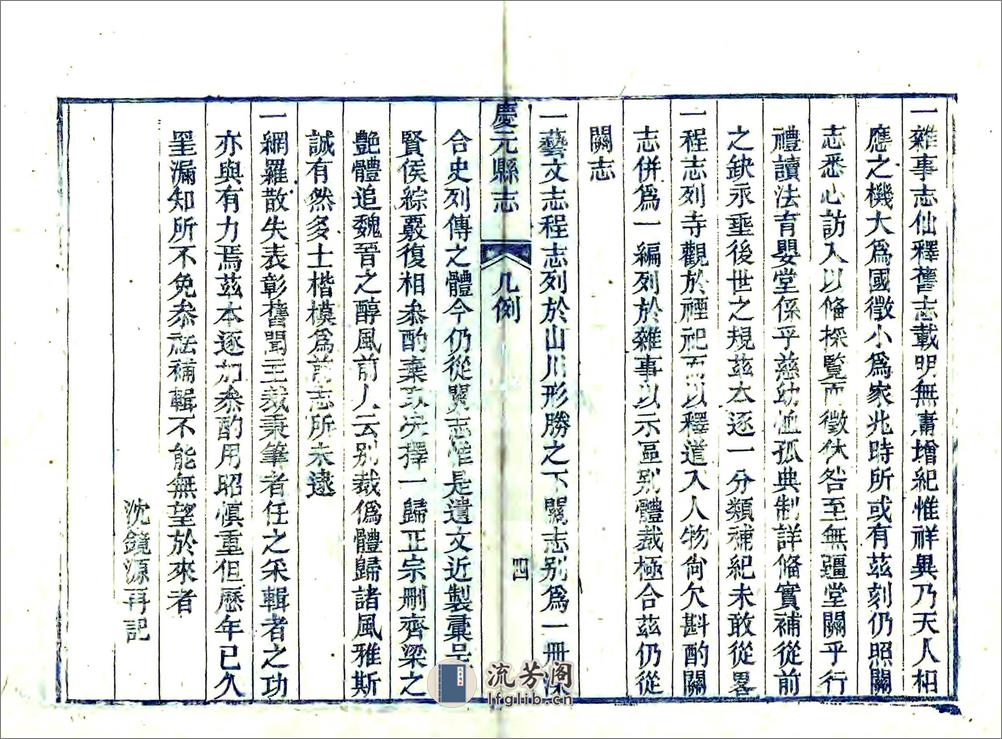 一雜事志仙釋舊志載明無庸增紀惟祥異乃天人相
應之機大爲國徵小爲家兆時所或有茲刻仍照關
志悉心訪入以俻採覽而徵休咎至無疆堂關乎行
禮讀法育嬰堂係乎慈幼恤孤典制詳俻實補從前
之缺永垂後世之規茲本逐一分類補紀未敢從畧
一程志列寺觀於禋祀而以釋道入人物尙欠斟酌關
志併爲一編列於雜事以示區别體裁極合茲仍從
關志
一藝文志程志列於山川形勝之下關志别爲一冊深
慶元縣志
凡例
四
合史列傳之體今仍從關志惟是遺文近製彚呈
賢侯綜覈復相叅酌棄取决擇一歸正宗刪齊梁之
艷體追魏晉之醇風前人云别裁僞體歸諸風雅斯
誠有然多士楷模爲前志所未逮
一網羅散失表彰舊聞主裁秉筆者任之采輯者之功
亦與有力焉茲本逐加叅酌用昭慎重但歷年已久
罣漏知所不免叅訂補輯不能無望於來者
沈鏡源再記
流芳阁
lfglib.com